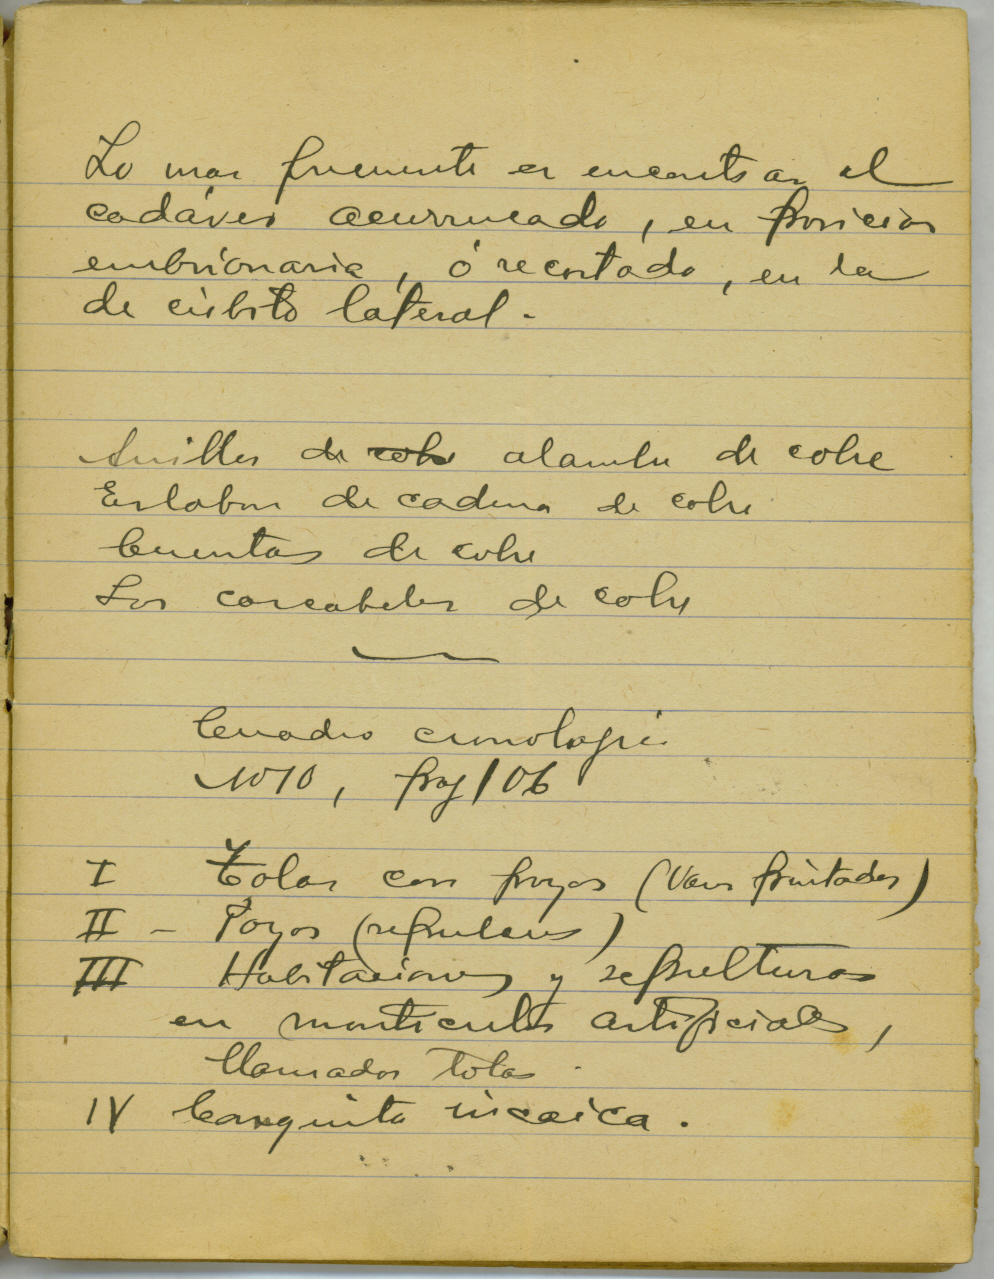 Lo mas frecuente es encontrar el
cadáver acurrucado, en posicion
embrionaria, ó recostado, en la
de cúbito lateral.
Anillos de cobre alambre de cobre
Eslabon de cadena de cobre
Cuentas de cobre
Los cascabeles de cobre
Cuadro cronologic
1010, pag 106
I Tolas con pozos (Vasos pintados)
II - Pozos (sepulcros)
III Habitaciones y sepulturas
en monticulos artificiales,
llamados tolas.
IV Conquista incaica.